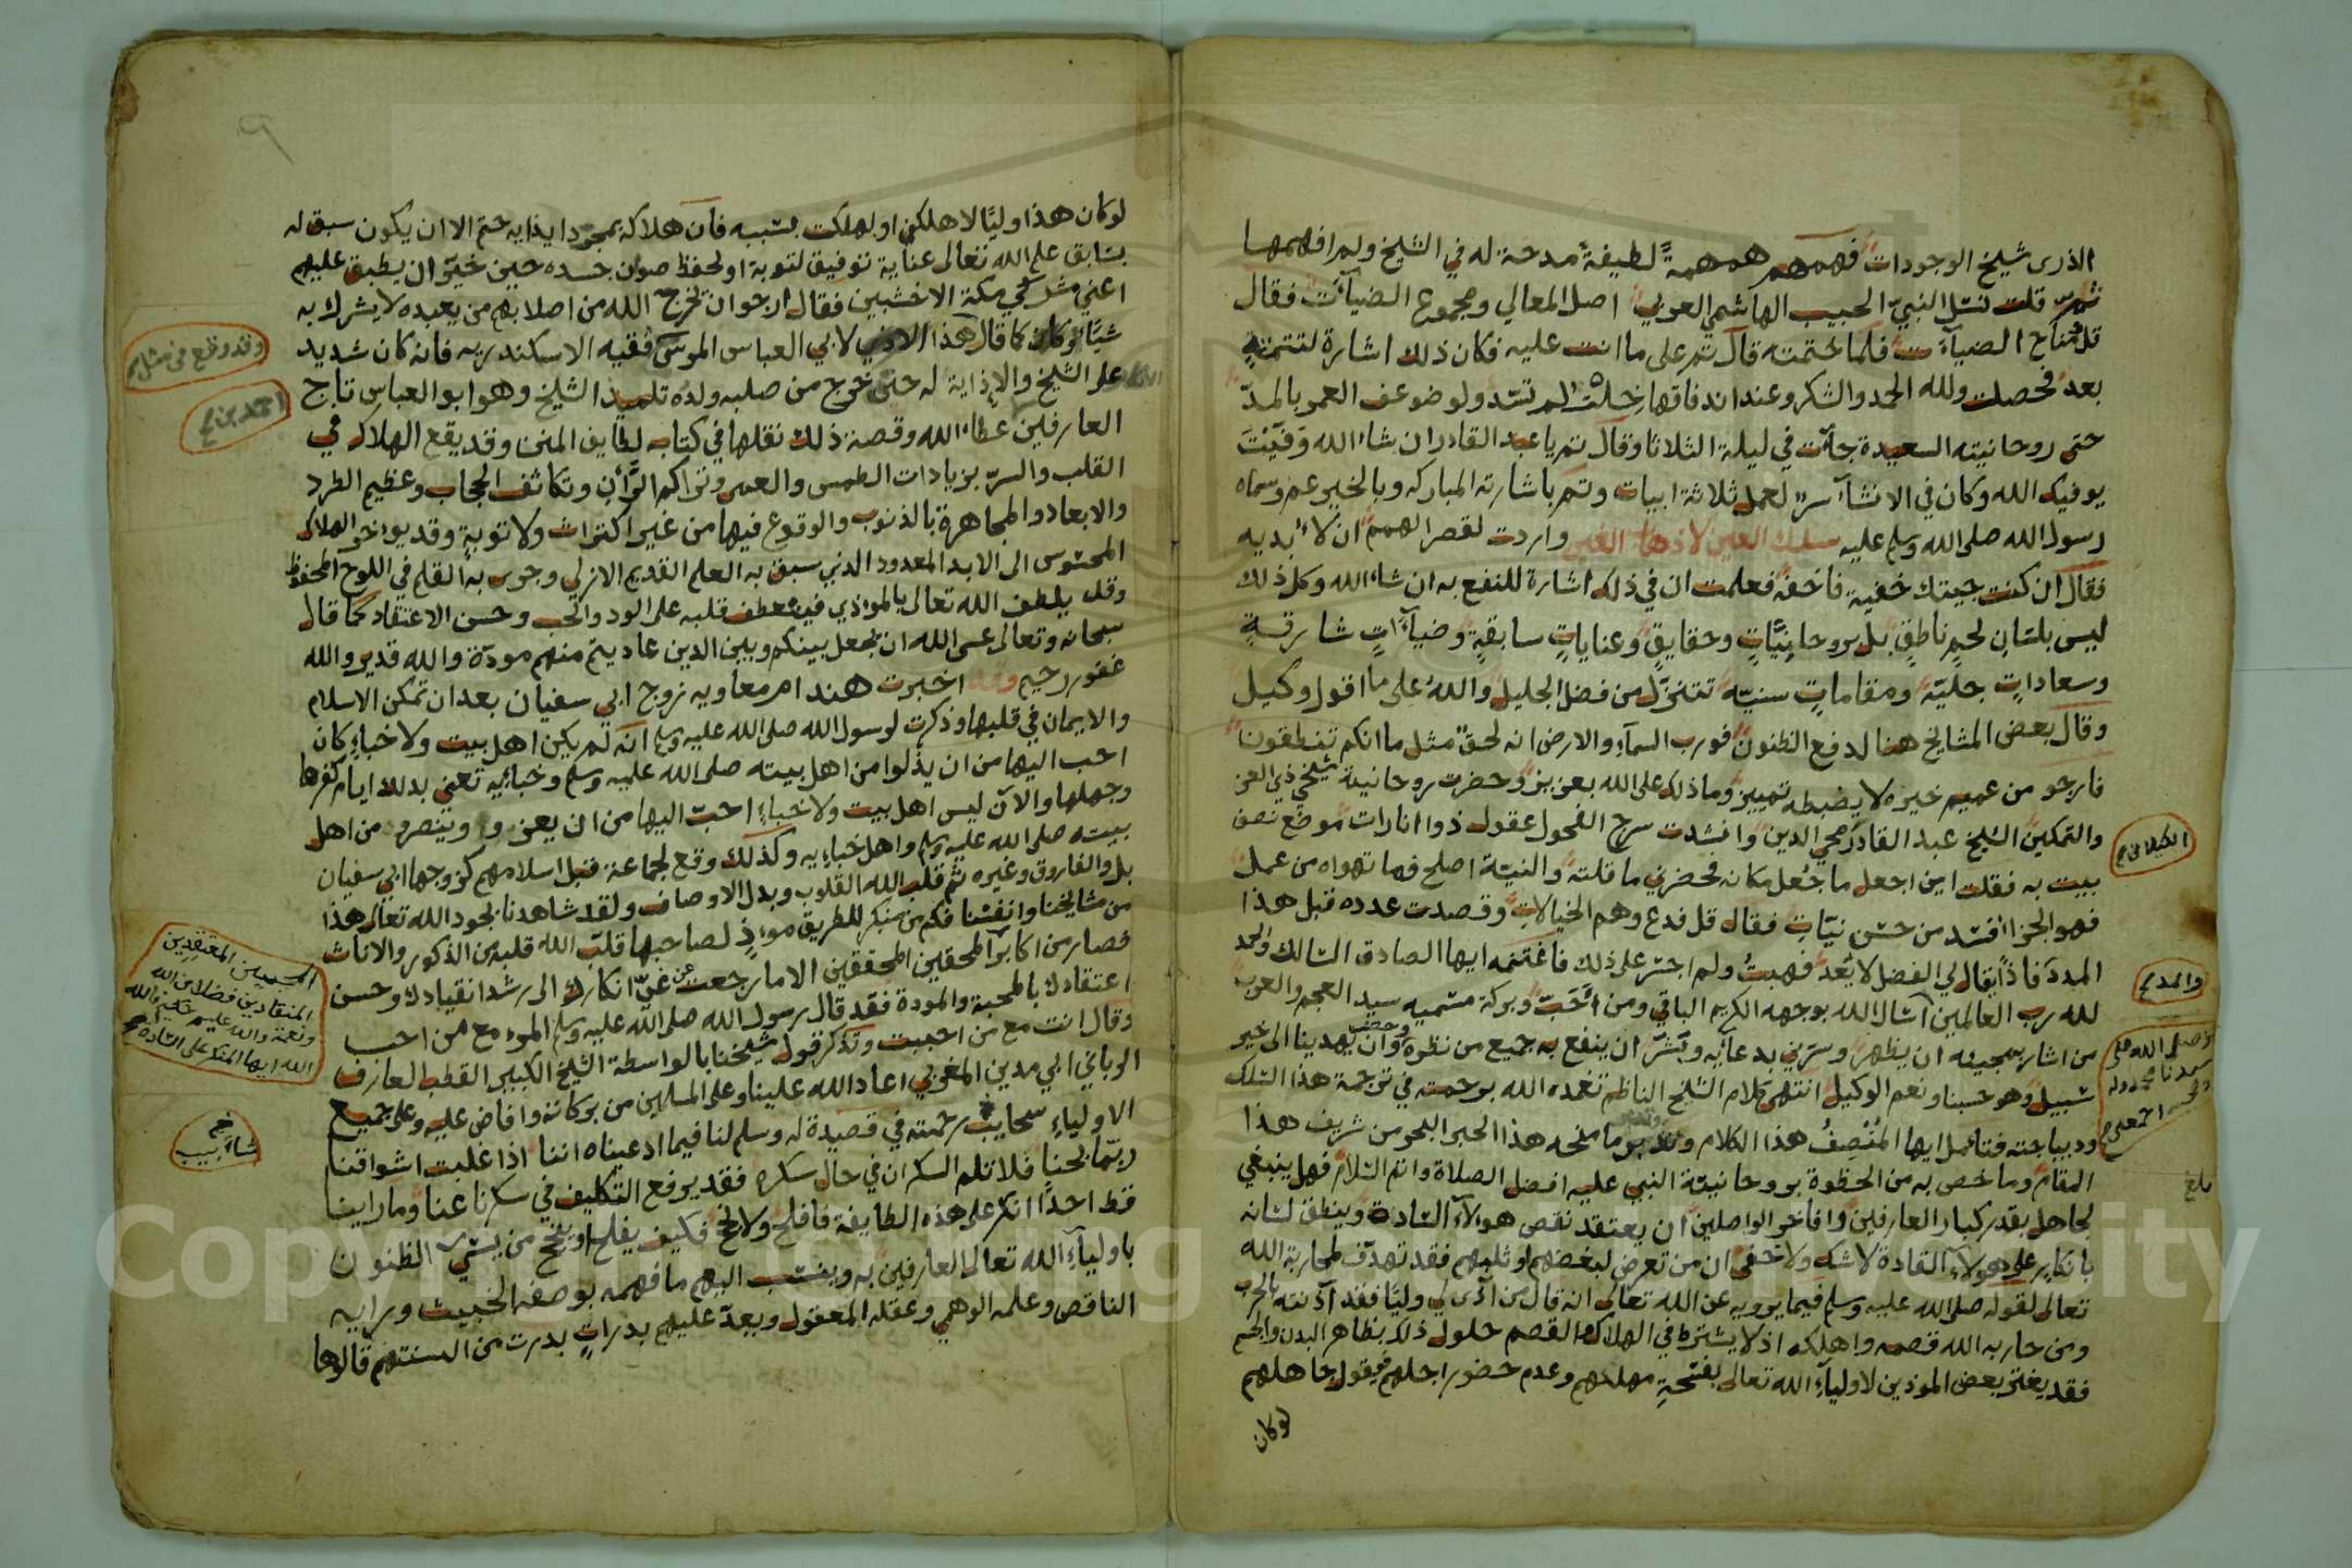 الذرى شيخ الوجودات فهمهم همهمة لطيفة مدحة له في الشيخ ولم افهمها
ثم قلت لنسل النبي الحبيب الهاشمي العربي اصل المعالي ومجموع الضيآت فقال
قل مفتاح الضيآت فلما ختمته قال تم على ما انت عليه فكان ذلك اشارة لتتمته
بعد فحصلت ولله الحمد والشكر وعند انفاقها خلت لم تسد ولو ضوعف العمر بالمد
حتى روحانيته السعيدة جآت في ليلة الثلاثا وقال تم يا عبد القادر ان شاء الله وفيت
يوفيك الله وكان في الانشآ سر لعمل ثلاثة ابيات وتم باشارته المباركه وبالخير عم وسماه
رسول الله صلى الله وسلم عليه سلك العين لاذهاب الغين واردت لقصر الهمم ان لا ابديه
فقال ان كنت جيتك خفية فاخفه فعلمت ان في ذلك اشارة للنفع به ان شاء الله وكل ذلك
ليس بلسان لحم ناطق بل بروحانيات وحقايق وعنايات سابقة وضيآات شارقة
وسعادات جلية ومقامات سنية تتنزل من فضل الجليل والله على ما اقول وكيل
وقال بعض المشايخ هنا لدفع الظنون فورب السمآء والارض انه لحق مثل ما انكم تنطقون
فارجو من عميم خيره لا يضبطه تمييز وما ذلك على الله بعزيز وحضرت روحانية شيخي ذي العز
والتمكين الشيخ عبد القادر محي الدين وانشدت سرج الفحول عقول ذوا انارات موضع نصف
بيت به فقلت اين اجعل ما جعل مكانه فحضرني ما قلته والنية اصلح فما تهواه من عمل
فهو الجزا افشد من حسن نيات فقال قل فدع وهم الخيالات وقصدت عدده قبل هذا
المدد فاذا يقال لي الفضل لا يعد فهبت ولم اجسر على ذلك فاغتنمه ايها الصادق السالك والحمد
لله رب العالمين اسال الله بوجهه الكريم الباقي ومن احب وبركة مسميه سيد العجم والعرب
من اشار بمجيئه ان يظهر وسرني بدعآيه وبشر ان ينفع به جميع من نظره وحصله وان يهدينا الى خير
سبيل وهو حسبنا ونعم الوكيل انتهى كلام الشيخ الناظم تغمده الله برحمته في ترجمة هذا السلك
وديباجته فتامل ايها المنصف هذا الكلام وتدبر ما منحه هذا الحبر البحر من شريف هذا
المقام وما خص به من الحظوة بروحانية النبي عليه افضل الصلاة واتم السلام فهل ينبغي
لجاهل بقدر كبار العارفين وافاخر الواصلين ان يعتقد نقص هولآء السادة وينطق لسانه
بانكار على هولاء القادة لا شك ولا خفى ان من تعرض لبغضهم او ثلبهم فقد تهدف لمحاربة الله
تعالى لقوله صلى الله عليه وسلم فيما يرويه عن الله تعالى انه قال من آذى لي وليا فقد آذنته بالحرب
ومن حاربه الله قصمه واهلكه اذ لا يشترط في الهلاك والقصم حلول ذلك بظاهر البدن والجسم
فقد يغتر بعض الموذين لاولياء الله تعالى بفسحة مهلهم وعدم حضور اجلهم فيقول جاهلهم
لوكان
الكيلاني صح
والمدد صح
وصلى الله على
سيدنا محمد واله
وصحبه اجمعين
بلغ
لوكان هذا وليا لاهلكني او لهلكت بسببه فان هلاكه بمجرد ايذايه حتم الا ان يكون سبق له
بسابق علم الله تعالى عناية توفيق لتوبة او لحفظ صوان جسده حين خير ان يطبق عليهم
اعني مشركي مكة الاخشبين فقال ارجو ان يخرج الله من اصلابهم من يعبده لا يشرك به
شيئا وكان كما قال هذا الاذى لابي العباس المرسي فقيه الاسكندريه فانه كان شديد
على الشيخ والاذاية له حتى خرج من صلبه ولده تلميذ الشيخ وهو ابو العباس تاج
العارفين عطاء الله وقصة ذلك نقلها في كتابه لطايف المنن وقد يقع الهلاك في
القلب والسر بزيادات الطمس والعمى وتراكم الران وتكاثف الحجاب وعظيم الطرد
والابعاد والمجاهرة بالذنوب والوقوع فيها من غير اكتراث ولا توبة وقد يواخر الهلاك
المحسوس الى الابد المعدود الذي سبق به العلم القديم الازلي وجرى به القلم في اللوح المحفوظ
وقد يلطف الله تعالى بالموذي فيعطف قلبه على الود والحب وحسن الاعتقاد كما قال
سبحانه وتعالى عسى الله ان يجعل بينكم وبين الذين عاديتم منهم مودة والله قدير والله
غفور رحيم وقد اخبرت هند ام معاويه زوج ابي سفيان بعد ان تمكن الاسلام
والايمان في قلبها وذكرت لرسول الله صلى الله عليه وسلم انه لم يكن اهل بيت ولا خباء كان
احب اليها من ان يذلوا من اهل بيته صلى الله عليه وسلم وخبائيه تعني بذلك ايام كفرها
وجهلها والآن ليس اهل بيت ولا خباء احب اليها من ان يعزوا وينصروا من اهل
بيته صلى الله عليه وسلم واهل خبايه وكذلك وقع لجماعة قبل اسلامهم كزوجها ابي سفيان
بل والفاروق وغيره ثم قلب الله القلوب وبدل الاوصاف ولقد شاهدنا بجود الله تعالى هذا
من مشايخنا وانفسنا فكم من منكر للطريق موذ لصاحبها قلب الله قلبه من الذكور والاناث
فصار من اكابر المحقين المحققين الا ما رجعت عن غي انكارك الى رشد انقيادك وحسن
اعتقادك بالمحبة والمودة فقد قال رسول الله صلى الله عليه وسلم المرء مع من احب
وقال انت مع من احببت وتذكر قول شيخنا بالواسطة الشيخ الكبير القطب العارف
الرباني ابي مدين المغربي اعاد الله علينا وعلى المسلمين من بركاته وافاض عليه وعلى جميع
الاولياء سحايب رحمته في قصيدة له وسلم لنا فيما ادعيناه اننا اذا غلبت اشواقنا
ربما بحنا فلا تلم السكران في حال سكره فقد يرفع التكليف في سكرنا عنا وما راينا
قط احدا انكر على هذه الطايفة فافلح ولا نجح فكيف يفلح او ينجح من يسئ الظنون
باوليآء الله تعالى العارفين به وينسب اليهم ما فهمه بوصفه الخبيث ورايه
الناقص وعلمه الوهمي وعقله المعقول ويعد عليهم بدرات بدرت من السنتهم قالوها
وقد وقع من مثل صح
احمد بن صح
المحبين المعتقدين
المنقادين فضلا من الله
ونعمة والله عليم حكيم فالله
الله ايها المنكر على السادة صح